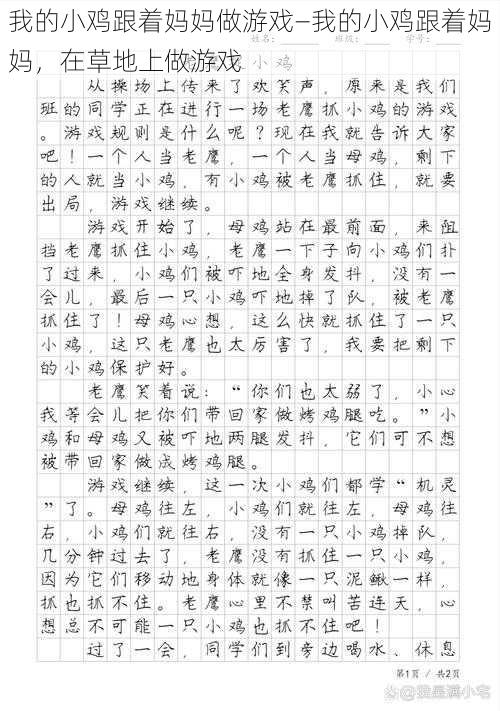 我的小鸡跟着妈妈做游戏—我的小鸡跟着妈
妈，在草地上做游戏
姓名： 班级： 学号：
小鸡
从操场上传来了欢笑声，原来是我们
班的同学正在进行一场老鹰抓小鸡的游戏
。游戏规则是什么呢？现在我就告诉大家
吧！一个人当老鹰，一个人当母鸡，剩下
的人就当小鸡，有小鸡被老鹰抓住，就要
出局，游戏继续。
游戏开始了，母鸡站在最前面，来阻
挡老鹰抓住小鸡，老鹰一下子向小鸡们扑
了过来，小鸡们被吓地全身发抖，没有一
会儿，最后一只小鸡吓地掉了队，被老鹰
抓住了！母鸡心想，这么快就抓住了一只
小鸡，这只老鹰也太厉害了，我要把剩下
的小鸡保护好。
老鹰笑着说：“你们也太弱了，小心
我等会儿把你们带回家做烤鸡腿吃。”小
鸡和母鸡又被吓地两腿发抖，它们可不想
被带回家做成烤鸡腿。
游戏继续，这一次小鸡们都学“机灵
”了。母鸡往左，小鸡们就往左，母鸡往
右，小鸡们就往右，没有一只小鸡掉队，
几分钟过去了，老鹰没有抓住一只小鸡，
因为它们移动地身体就像一只泥鳅一样，
抓也抓不住。老鹰心里不禁叫苦连天，心
想总不可能一只小鸡也抓不住吧！
过了一会，同学们到旁边喝水、休息
第1页 / 共2页
@我是满小宅